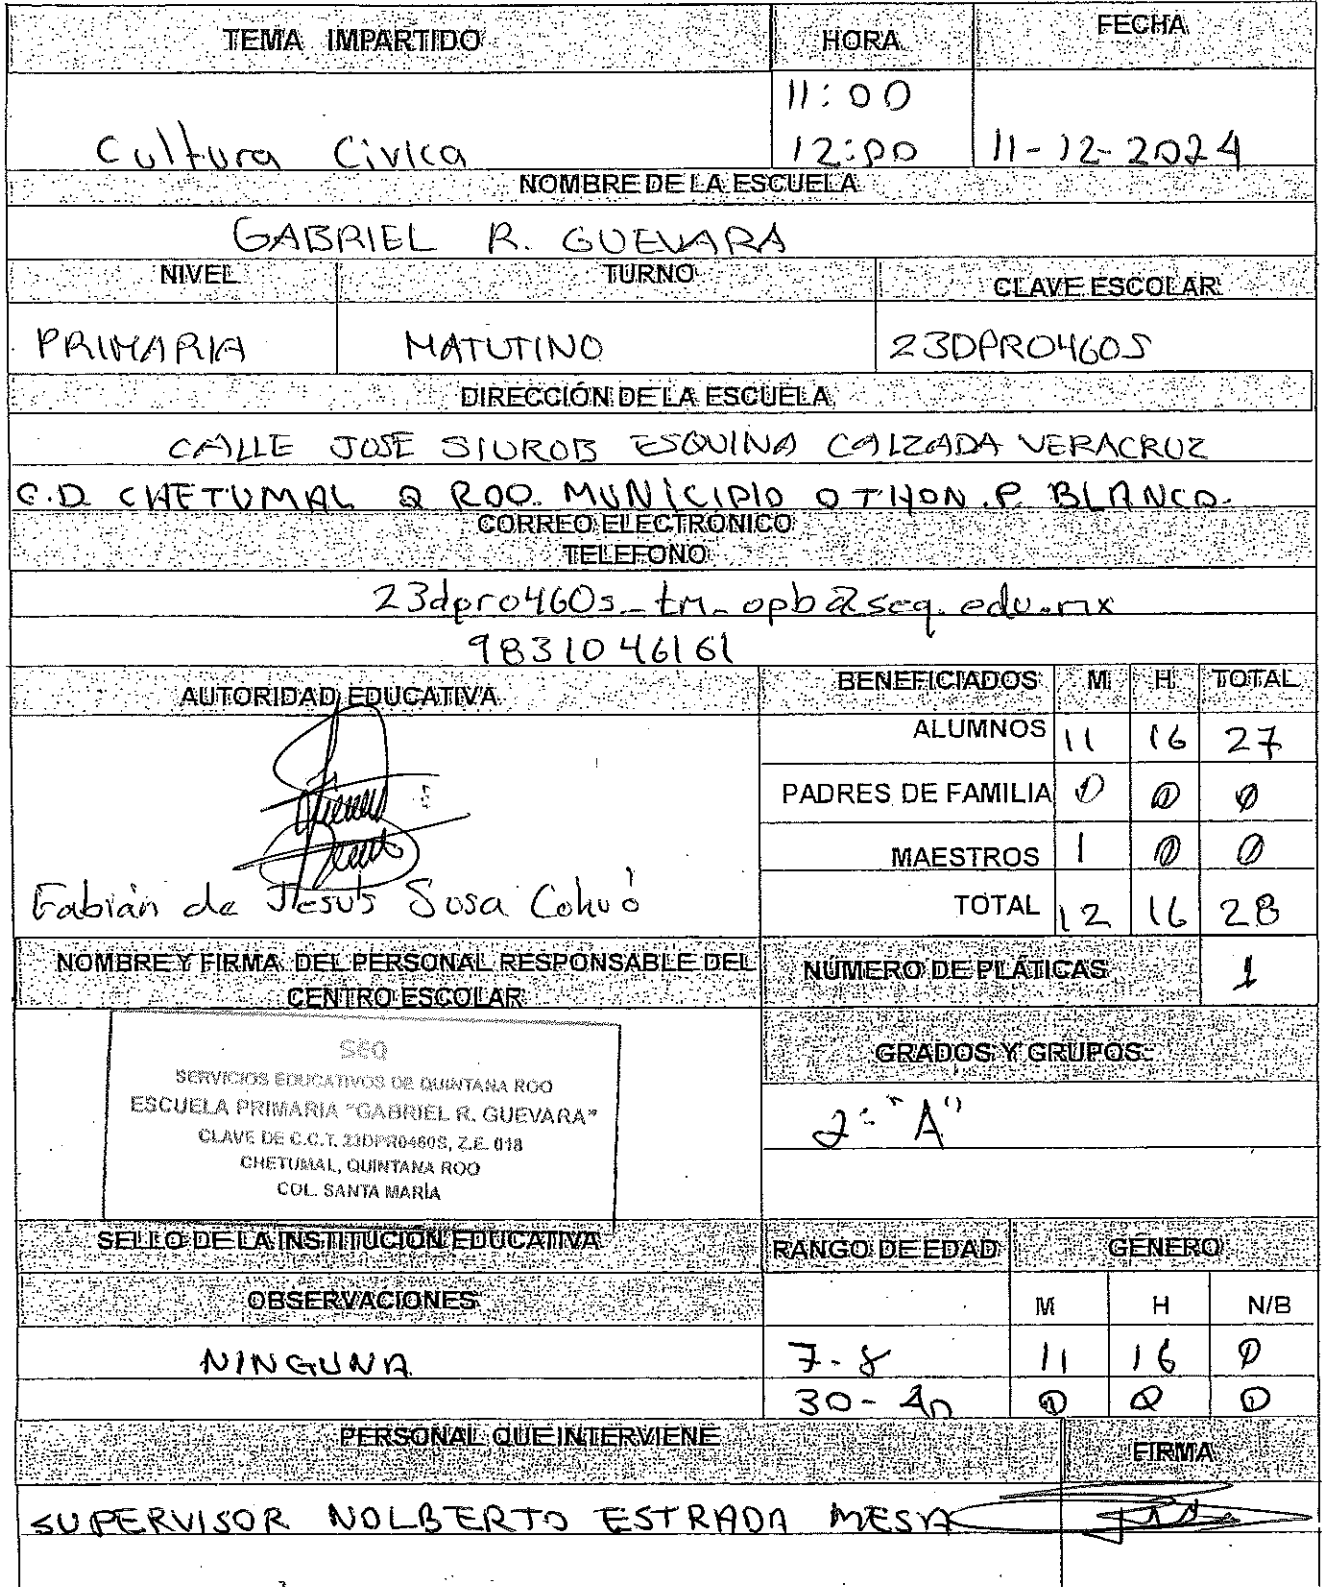 TEMA IMPARTIDO HORA FECHA
11:00
Cultura Civica 12:00 11-12-2024
NOMBRE DE LA ESCUELA
GABRIEL R. GUEVARA
NIVEL TURNO CLAVE ESCOLAR
PRIMARIA MATUTINO 23DPRO460S
DIRECCIÓN DE LA ESCUELA
CALLE JOSE SIUROB ESQUINA CALZADA VERACRUZ
C.D. CHETUMAL Q ROO. MUNICIPIO OTHON.P. BLANCO.
CORREO ELECTRÓNICO
TELEFONO
23dpro460s_tm_opb@seq.edu.mx
9831046161
AUTORIDAD EDUCATIVA BENEFICIADOS M H TOTAL
ALUMNOS 11 16 27
PADRES DE FAMILIA 0 0 0
MAESTROS 1 0 0
Fabián de Jesús Sosa Cohuó TOTAL 12 16 28
NOMBRE Y FIRMA DEL PERSONAL RESPONSABLE DEL CENTRO ESCOLAR NUMERO DE PLÁTICAS 1
SEQ
SERVICIOS EDUCATIVOS DE QUINTANA ROO
ESCUELA PRIMARIA "GABRIEL R. GUEVARA"
CLAVE DE C.C.T. 23DPR0460S, Z.E. 018
CHETUMAL, QUINTANA ROO
COL. SANTA MARÍA
GRADOS Y GRUPOS:
2° "A"
SELLO DE LA INSTITUCIÓN EDUCATIVA RANGO DE EDAD GÉNERO
OBSERVACIONES M H N/B
NINGUNA 7-8 11 16 0
30-40 0 0 0
PERSONAL QUE INTERVIENE FIRMA
SUPERVISOR NOLBERTO ESTRADA MESA